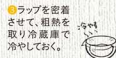 ❸ラップを密着
させて、粗熱を
取り冷蔵庫で
冷やしておく。
冷やす